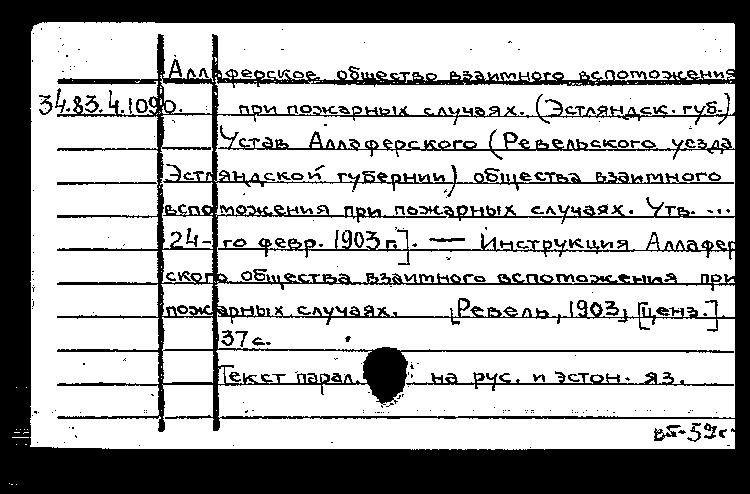 Аллаферское общество взаимного вспоможения
34.83.4.1090. при пожарных случаях. (Эстляндск. губ.)
Устав Аллаферского (Ревельского уезда
Эстляндской губернии) общества взаимного
вспоможения при пожарных случаях. Утв. ...
24-го февр. 1903 г.]. — Инструкция Аллафер
ского общества взаимного вспоможения при
пожарных случаях. [Ревель, 1903, [ценз.]
37 с.
Текст парал. на рус. и эстон. яз.